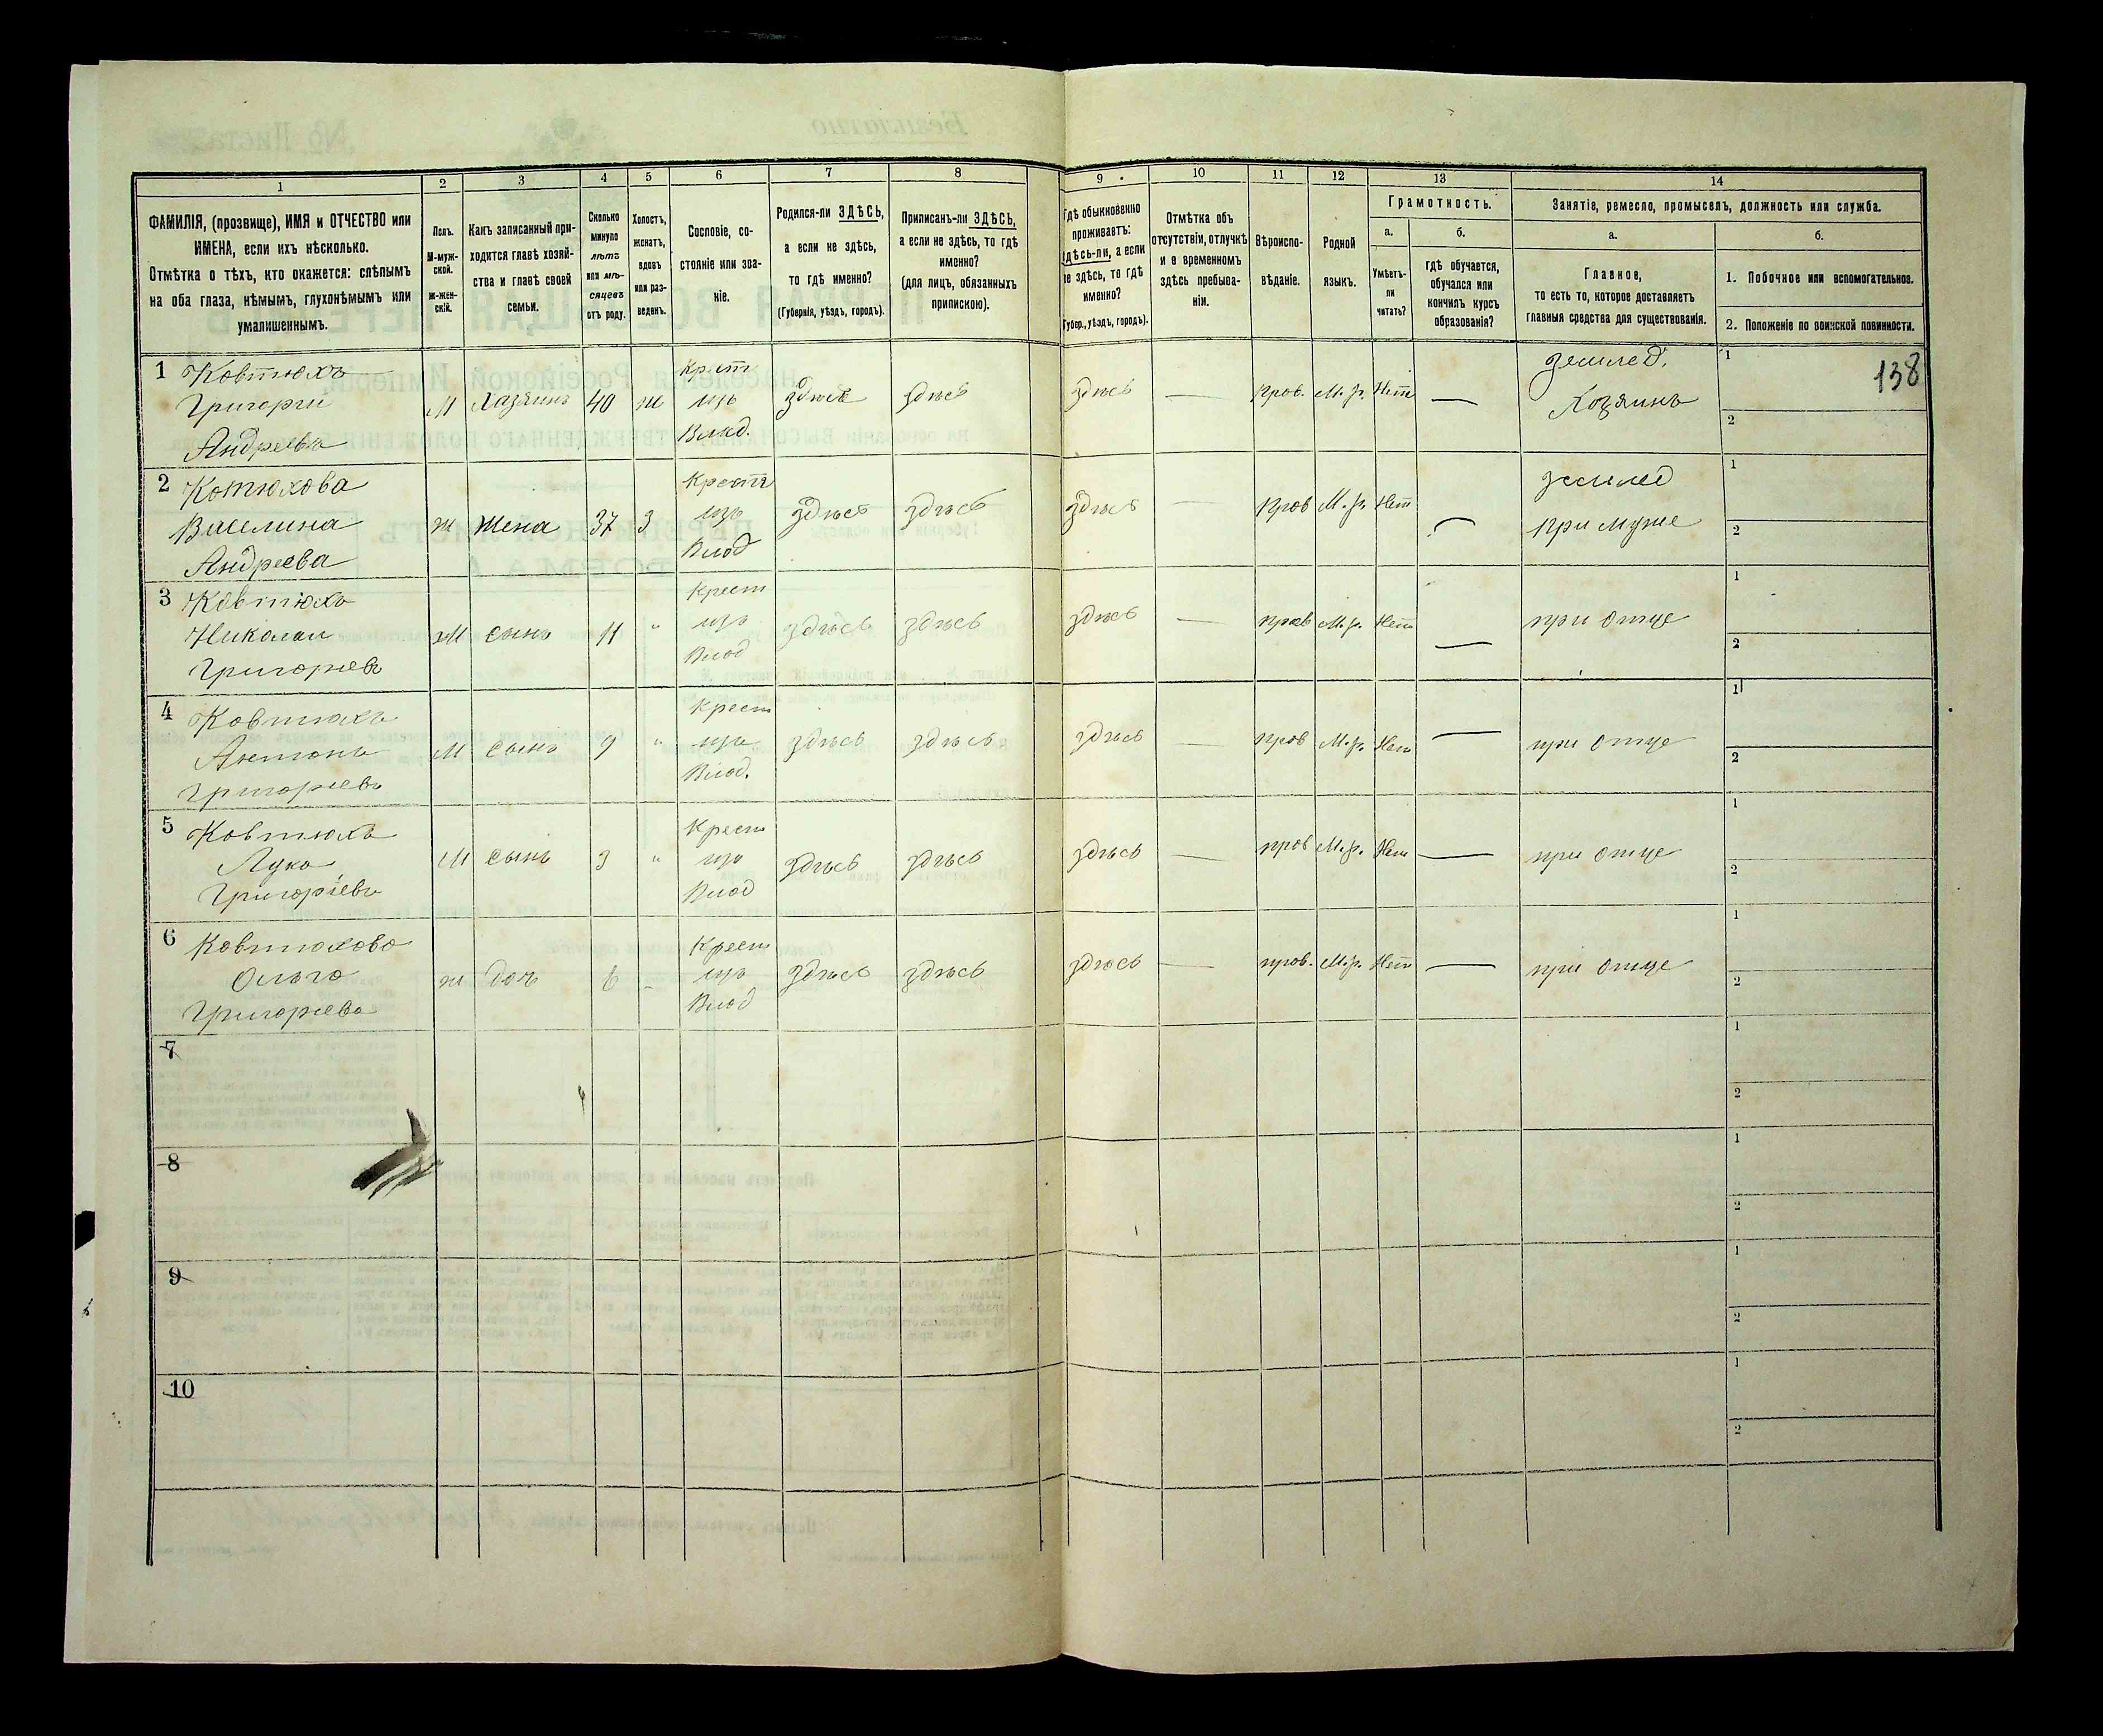 1 2 3 4 5 6 7 8 9 10 11 12 13 14
ФАМИЛІЯ, (прозвище), ИМЯ и ОТЧЕСТВО или
ИМЕНА, если ихъ нѣсколько.
Отмѣтка о тѣхъ, кто окажется: слѣпымъ
на оба глаза, нѣмымъ, глухонѣмымъ или
умалишеннымъ.
Полъ.
М-муж-
ской.
Ж-жен-
скій.
Какъ записанный при-
ходится главѣ хозяй-
ства и главѣ своей
семьи.
Сколько
минуло
лѣтъ
или мѣ-
сяцевъ
отъ роду.
Холостъ,
женатъ,
вдовъ
или раз-
веденъ.
Сословіе, со-
стояніе или зва-
ніе.
Родился-ли ЗДѢСЬ,
а если не здѣсь,
то гдѣ именно?
(Губернія, уѣздъ, городъ).
Приписанъ-ли ЗДѢСЬ,
а если не здѣсь, то гдѣ
именно?
(для лицъ, обязанныхъ
припискою).
Гдѣ обыкновенно
проживаетъ:
здѣсь-ли, а если
не здѣсь, то гдѣ
именно?
(Губер., уѣздъ, городъ).
Отмѣтка объ
отсутствіи, отлучкѣ
и о временномъ
здѣсь пребыва-
ніи.
Вѣроиспо-
вѣданіе.
Родной
языкъ.
Грамотность.
а.
Умѣетъ-
ли
читать?
б.
гдѣ обучается,
обучался или
кончилъ курсъ
образованія?
Занятіе, ремесло, промыселъ, должность или служба.
а.
Главное,
то есть то, которое доставляетъ
главныя средства для существованія.
б.
1. Побочное или вспомогательное.
2. Положеніе по воинской повинности.
138
1 Ковтюхъ Крест землед. 1
Григорги М Хазяинъ 40 ж изъ здѣсь здѣсь здѣсь — Прав. М. р. Нѣт — Хозяинъ
Андреевъ Влад. 2
2 Котюхова Крест землед 1
Васелина ж Жена 37 З изъ здѣсь здѣсь здѣсь — Прав М. р. Нет — при муже
Андреева Влад 2
3 Ковтюхъ Крест 1
Николаи М сынъ 11 " изъ здѣсь здѣсь здѣсь — прав М. р. Нет — при отце
Григориевъ Влад 2
4 Ковтюхъ Крест 1
Антонъ М сынъ 9 " изъ здѣсь здѣсь здѣсь — прав М. р. Нет — при отце
Григориевъ Влад. 2
5 Ковтюхъ Крест 1
Лука М сынъ 3 " изъ здѣсь здѣсь здѣсь — прав М. р. Нет — при отце
Григоріевъ Влад 2
6 Ковтюхова Крест 1
Ольга ж доч 6 - изъ здѣсь здѣсь здѣсь — прав. М. р. Нет — при отце
Григориева Влад 2
7 1
2
8 1
2
9 1
2
10 1
2